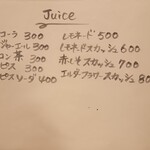 Juice
コーラ 300
ジャーエール 300
コン茶 300
ピス 300
ピスソーダ 400
レモネード 500
レモネードスカッシュ 600
赤しそスカッシュ 700
エルダーフラワースカッシュ 80